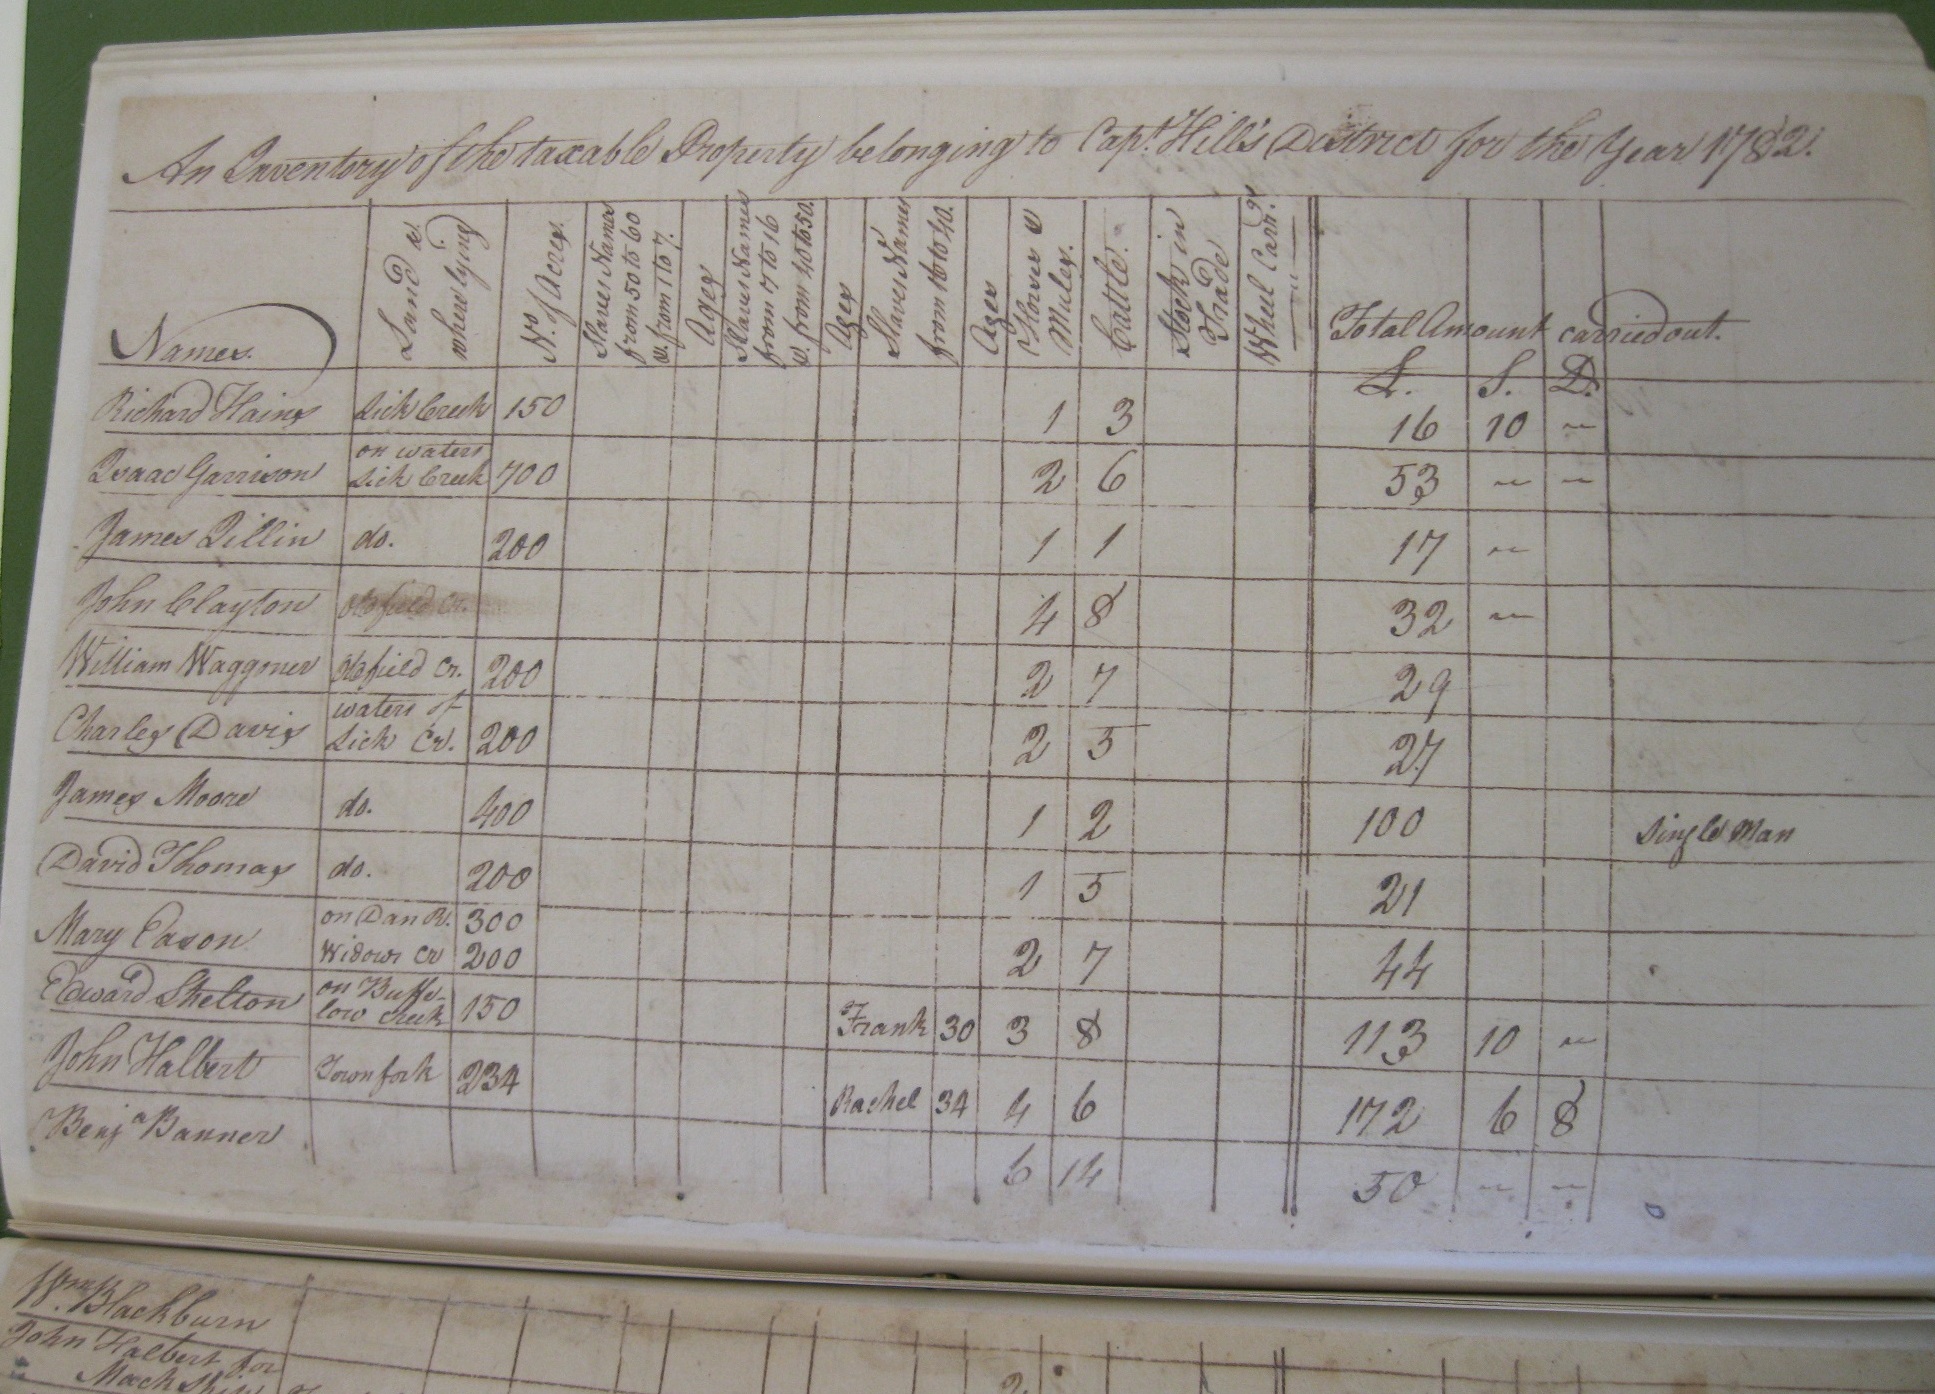 An Inventory of the taxable Property belonging to Capt. Hill's District for the Year 1782.
Names. Land & where lying No. of Acres. Slaves Names from 50 to 60 & from 1 to 7. Ages Slaves Names from 7 to 16 & from 40 to 50. Ages Slaves Names from 16 to 40. Ages Horses & Mules. Cattle. Stock in Trade Wheel Carr.s Total Amount carried out.
L. S. D.
Richard Hains Lick Creek 150 1 3 16 10 ~
Isaac Garrison on waters Lick Creek 700 2 6 53 ~ ~
James Lillin do. 200 1 1 17 ~
John Clayton Oldfield Cr. 4 8 32 ~
William Waggoner Oldfield Cr. 200 2 7 29
Charles Davis waters of Lick Cr. 200 2 5 27
James Moore do. 400 1 2 100 Single Man
David Thomas do. 200 1 5 21
Mary Eason on Dan R. 300
Widows Cr 200 2 7 44
Edward Shelton on Buffe-
low Creek 150 Frank 30 3 8 113 10 ~
John Halbert Townfork 234 Rachel 34 4 6 172 6 8
Benja Banner 6 14 50 ~ ~
Wm. Blackburn
John Halbert for
Mack
2